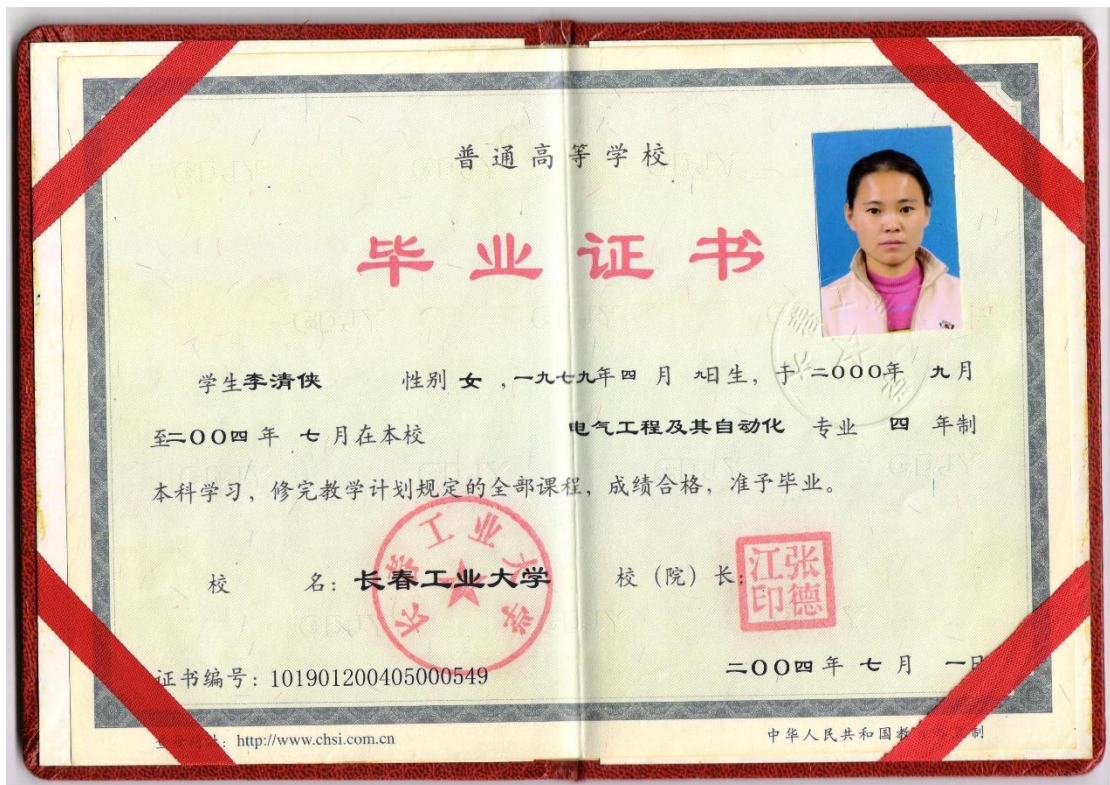 普通高等学校
毕业证书
学生李清侠 性别 女 ,一九七九年四 月 九日生，于 二000年 九月
至二00四 年 七 月在本校 电气工程及其自动化 专业 四 年制
本科学习，修完教学计划规定的全部课程，成绩合格，准予毕业。
校 名：长春工业大学 校（院）长：
长春工业大学
张德江印
二00四 年 七 月 一日
证书编号：101901200405000549
http://www.chsi.com.cn
中华人民共和国教 制